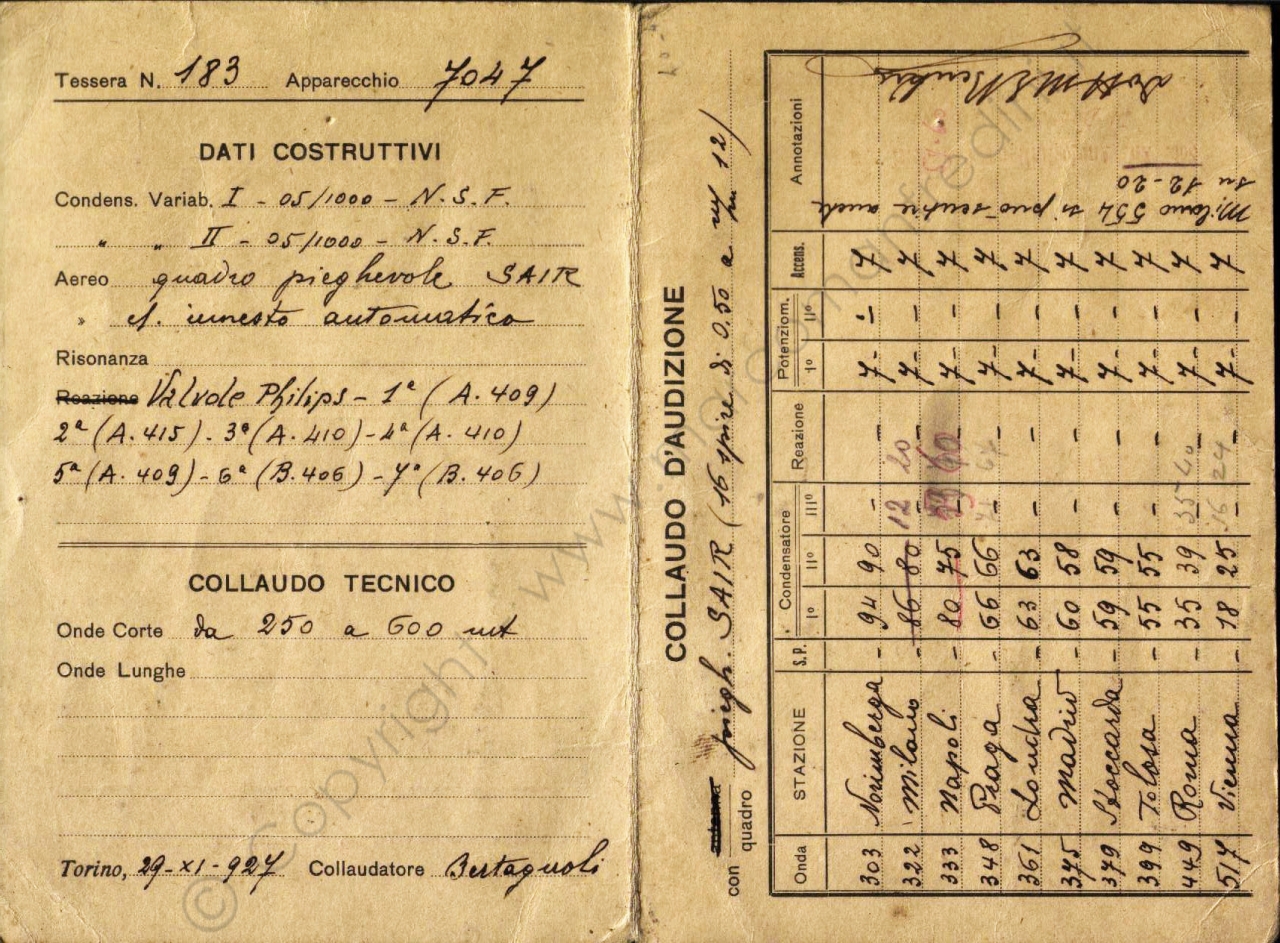 Tessera N. 183 Apparecchio 7047
DATI COSTRUTTIVI
Condens. Variab. I - 05/1000 - N.S.F.
" " II - 05/1000 - N.S.F.
Aereo quadro pieghevole SAIR
" innesto automatico
Risonanza
Reazione Valvole Philips - 1ª (A.409)
2ª (A.415) - 3ª (A.410) - 4ª (A.410)
5ª (A.409) - 6ª (B.406) - 7ª (B.406)
COLLAUDO TECNICO
Onde Corte da 250 a 600 mt
Onde Lunghe
Torino, 29-XI-927 Collaudatore Bertagnoli
COLLAUDO D'AUDIZIONE
con antenna
quadro piegh. SAIR (16 spire di 0.50 a 12)
Onda STAZIONE S.P. Condensatore Reazione Potenziom. Accens. Annotazioni
I° II° III° I° II°
303 Norimberga - 94 90 - - 7- - 7
322 Milano - 86 80 - - 7- - 7
12 20
333 Napoli - 80 75 - - 7- - 7
348 Praga - 66 66 - - 7- - 7
361 Londra - 63 63 - - 7- - 7
375 Madrid - 60 58 - - 7- - 7
379 Stoccarda - 59 59 - - 7- - 7
399 Tolosa - 55 55 - - 7- - 7
449 Roma - 35 39 - - 7- - 7
35 40
517 Vienna - 18 25 - - 7- - 7
16 24
Milano 554 si può sentire anche
su 12-20
© Copyright www.